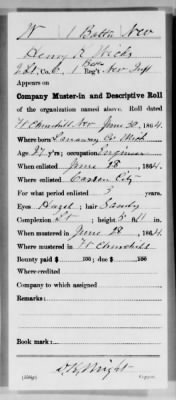 W | 1 Battn | Nev
Henry R. Wicks
2 Lt., Co. C, 1 Batt Reg't Nev Inf
Appears on
Company Muster-in and Descriptive Roll
of the organization named above. Roll dated
Ft Churchill Nev June 30, 1864.
Where born Lenawee Co. Mich
Age 27 y'rs; occupation Engineer
When enlisted June 28, 1864.
Where enlisted Carson City
For what period enlisted 3 years.
Eyes Hazel; hair Sandy
Complexion Lt; height 5 ft. 11 in.
When mustered in June 28, 1864
Where mustered in Ft Churchill
Bounty paid $ 100; due $ 100
Where credited
Company to which assigned
Remarks:
Book mark:
Wright
Copyist.